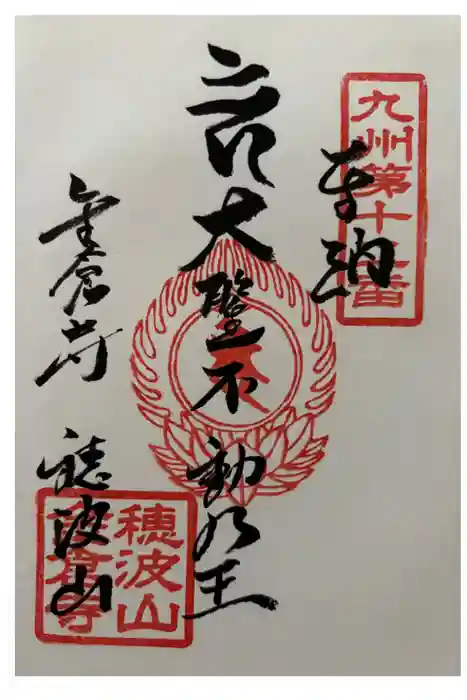 九州第十番
奉納
大聖不動明王
金倉寺 穂波山
穂波山
金倉寺